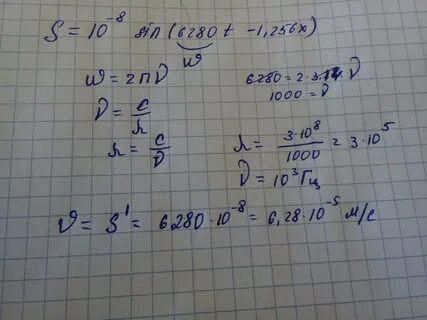 S = 10⁻⁸ sin(6280t - 1,256x)
ω
ω = 2πν
6280 = 2·3,14 ν
1000 = ν
ν = c/λ
λ = c/ν
λ = 3·10⁸/1000 = 3·10⁵
ν = 10³ Гц
ϑ = S' = 6280·10⁻⁸ = 6,28·10⁻⁵ м/с